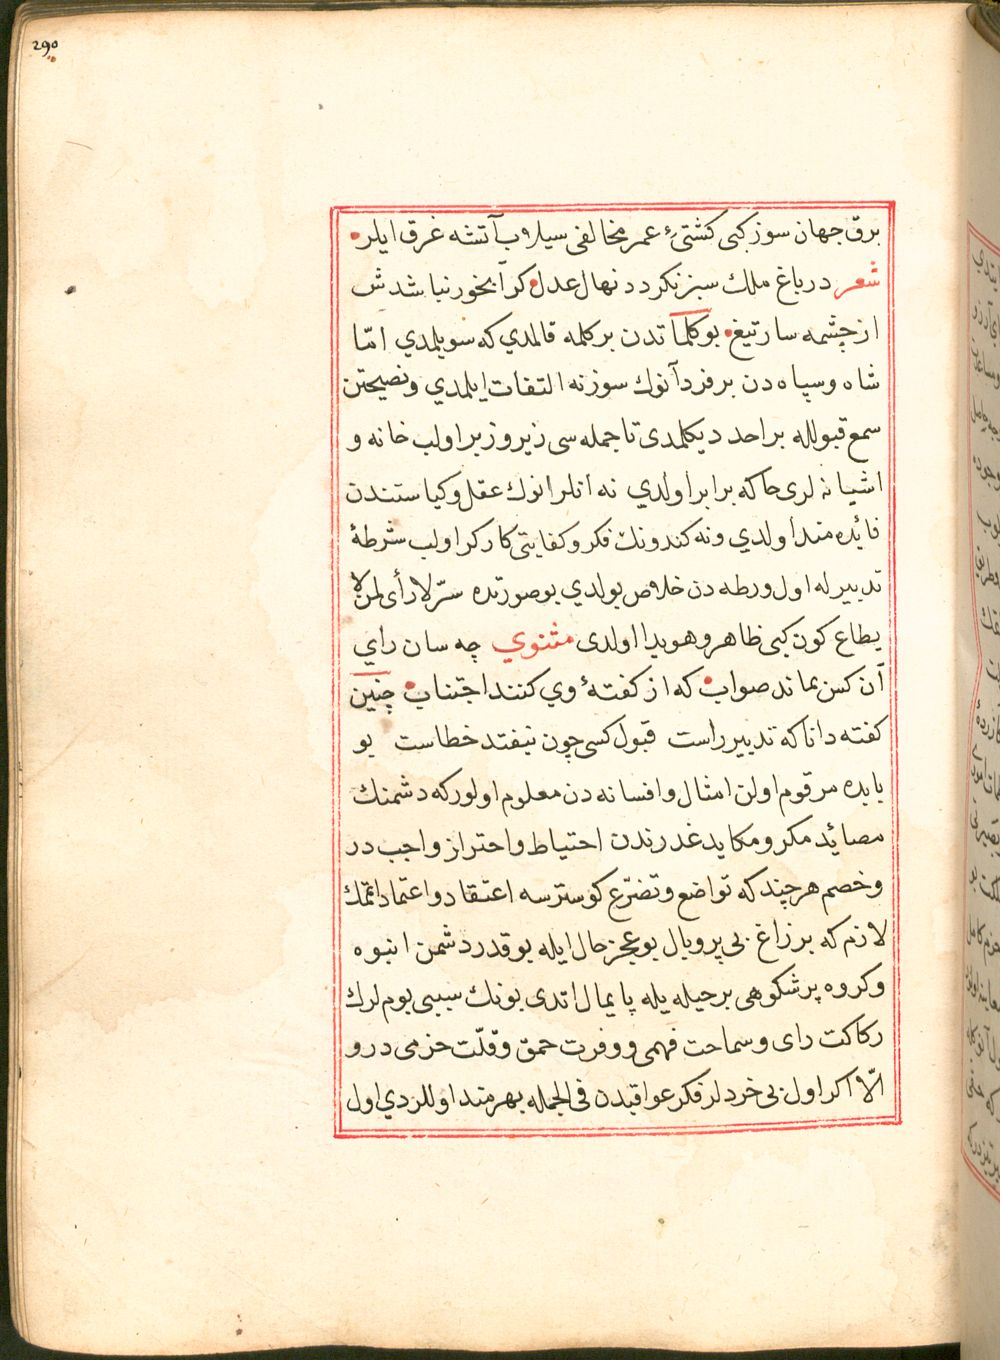 290
برق جهان سوز كبی كشتیء عمر مخالفی سیلاب آتشه غرق ایلر
شعر در باغ ملك سبز نكردد نهال عدل كر آبخور نباشدش
از چشمه سار تیغ بو كلماتدن بر كلمه قالمدي كه سویلمدي امّا
شاه و سپاه دن بر فرد آنوك سوزنه التفات ایلمدي و نصیحتن
سمع قبولله بر احد دیكلمدی تا جمله سی زیر و زبر اولب خانه و
اشیانه لری خاكه برابر اولدي نه انلر انوك عقل و كیاستندن
فائده مند اولدي و نه كندونك فكر و كفایتی كاركر اولب شرطهٔ
تدبیرله اول ورطه دن خلاص بولدي بو صورتده سرّ لا رأی لمن لا
یطاع كون كبی ظاهر و هویدا اولدی مثنوي چه سان راي
آن كس بماند صواب كه از كفتهٔ وي كنند اجتناب چنین
كفته دانا كه تدبیر راست قبول كسی چون نیفتد خطاست بو
بابده مرقوم اولن امثال و افسانه دن معلوم اولور كه دشمنك
مصائد مكر و مكاید غدرندن احتیاط و احتراز واجب در
و خصم هر چند كه تواضع و تضرّع كوسترسه اعتقاد و اعتماد اتمك
لازم كه بر زاغ بی پر و بال بو عجز حال ایله بو قدر دشمن انبوه
و كروه پر شكوهی بر حیله یله پایمال اتدی بونك سببی بوم لرك
ركاكت رای و سماحت فهمی و وفرت حمق و قلّت حزمی در و
الّا اكر اول بی خردلر فكر عواقبدن فی الجمله بهرمند اوللردي اول